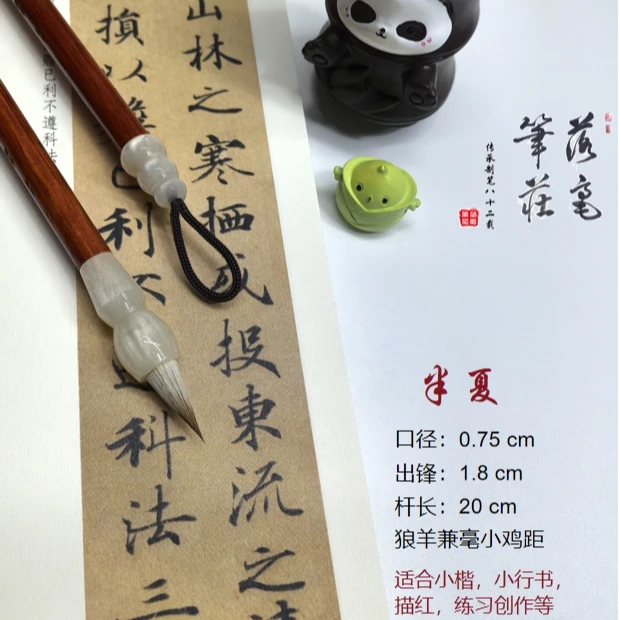 落毫
筆莊
传承制笔八十二载
山林之寒栖成投東流之
損以
利不
科法三
已利不遵科法
半夏
口径：0.75 cm
出锋：1.8 cm
杆长：20 cm
狼羊兼毫小鸡距
适合小楷，小行书，
描红，练习创作等